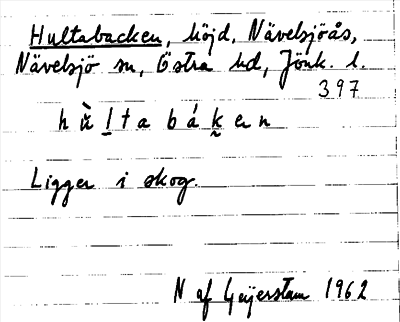 Hultabacken, höjd, Nävelsjöås,
Nävelsjö sn, Östra hd, Jönk. l.
397
h ù̈ l̲ t a b á k̰ e n
Ligger i skog.
N af Geijerstam 1962